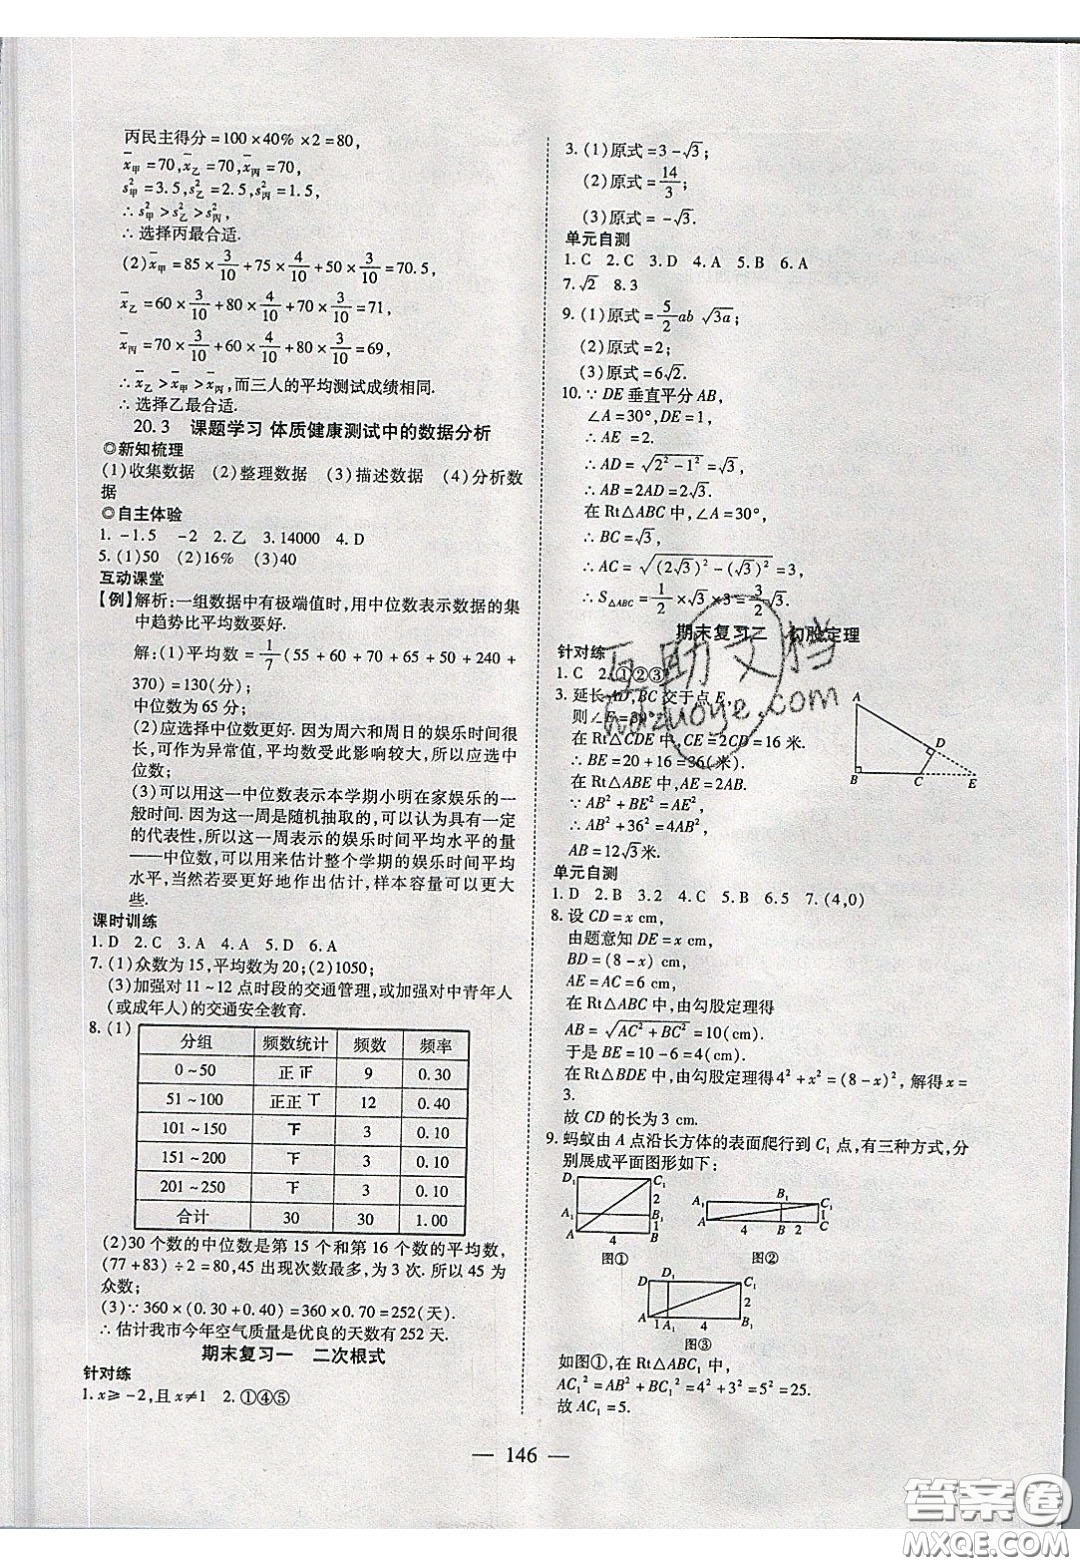 丙民主得分=100×40%×2=80,
x̄甲=70,x̄乙=70,x̄丙=70,
s²甲=3.5,s²乙=2.5,s²丙=1.5,
∴s²甲>s²乙>s²丙,
∴选择丙最合适.
(2)x̄甲=85×3/10+75×4/10+50×3/10=70.5,
x̄乙=60×3/10+80×4/10+70×3/10=71,
x̄丙=70×3/10+60×4/10+80×3/10=69,
∴x̄乙>x̄甲>x̄丙,而三人的平均测试成绩相同.
∴选择乙最合适.
20.3 课题学习 体质健康测试中的数据分析
◎新知梳理
(1)收集数据 (2)整理数据 (3)描述数据 (4)分析数
据
◎自主体验
1. -1.5 -2 2.乙 3.14000 4.D
5.(1)50 (2)16% (3)40
互动课堂
【例】解析:一组数据中有极端值时,用中位数表示数据的集
中趋势比平均数要好.
解:(1)平均数=1/7(55+60+30+55+50+240+
370)=130(分);
中位数为65分;
(2)应选择中位数更好.因为周六和周日的娱乐时间很
长,可作为异常值,平均数受此影响较大,所以应选中
位数;
(3)可以用这一中位数表示本学期小明在家娱乐的一
般时间.因为这一周是随机抽取的,可以认为具有一定
的代表性,所以这一周表示的娱乐时间平均水平的量
——中位数,可以用来估计整个学期的娱乐时间平均
水平,当然要更好地作出估计,样本容量可以更大
些.
课时训练
1.D 2.C 3.A 4.A 5.D 6.A
7.(1)众数为15,平均数为20;(2)1050;
(3)加强对11~12点时段的交通管理,或加强对中青年人
(或成年人)的交通安全教育.
8.(1)
分组 频数统计 频数 频率
0~50 正正 9 0.30
51~100 正正丅 12 0.40
101~150 下 3 0.10
151~200 下 3 0.10
201~250 下 3 0.10
合计 30 30 1.00
(2)30个数的中位数是第15个和第16个数的平均数,
(77+83)÷2=80,45出现次数最多,为3次.所以45为
众数;
(3)∵360×(0.30+0.40)=360×0.70=252(天).
∴估计我市今年空气质量是优良的天数有252天.
期末复习一 二次根式
针对练
1.x≥-2,且x≠1 2.①④⑤
3.(1)原式=3-√3;
(2)原式=14/3;
(3)原式=-√3.
单元自测
1.C 2.C 3.D 4.A 5.B 6.A
7.√2 8.3
9.(1)原式=5/2ab√3a;
(2)原式=2;
(3)原式=6√2.
10.∵DE垂直平分AB,
∠A=30°,DE=1,
∴AE=2.
∴AD=√(2²-1²)=√3.
∴AB=2AD=2√3.
在Rt△ABC中,∠A=30°,
∴BC=√3.
∴AC=√((2√3)²-(√3)²)=3,
∴S△ABC=1/2×√3×3=3/2√3.
期末复习二 勾股定理
针对练
1.C 2.①②③
3.延长AD,BC交于点E,
则∠E=30°.
在Rt△CDE中,CE=2CD=16米.
∴BE=20+16=36(米).
在Rt△ABE中,AE=2AB.
∵AB²+BE²=AE²,
∴AB²+36²=4AB²,
AB=12√3米.
A
D
B
C
E
单元自测
1.D 2.B 3.2 4.C 5.B 6.5 7.(4,0)
8.设CD=x cm,
由题意知DE=x cm,
BD=(8-x)cm,
AE=AC=6 cm,
在Rt△ABC中,由勾股定理得
AB=√(AC²+BC²)=10(cm).
于是BE=10-6=4(cm).
在Rt△BDE中,由勾股定理得4²+x²=(8-x)²,解得x=
3.
故CD的长为3 cm.
9.蚂蚁由A点沿长方体的表面爬行到C₁点,有三种方式,分
别展成平面图形如下:
D₁ C₁
2
A₁ B₁
1
A 4 B
图①
A₁ B₁ C₁
1
A 4 B 2 C
图②
D D₁ C₁
2
A 1 A₁ 4 B₁
图③
如图①,在Rt△ABC₁中,
AC₁²=AB²+BC₁²=4²+3²=5²=25.
故AC₁=5.
— 146 —
互助文档
huzuoye.com
答案卷
MXQE.COM